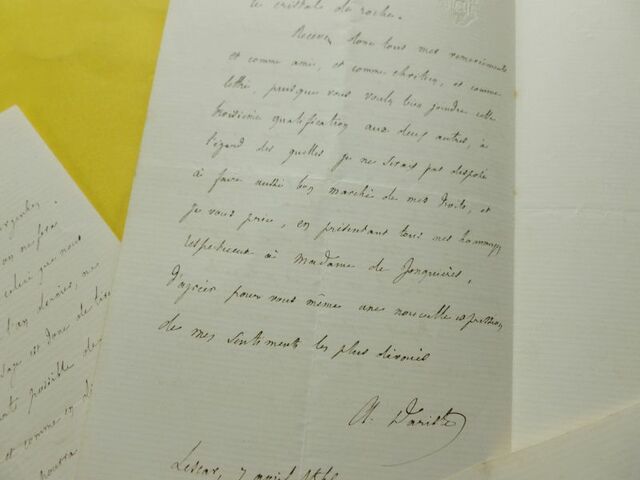 le cristal de roche.
Recevez donc tous mes remerciements
et comme ami, et comme chrétien, et comme
lettré, puisque vous voulez bien joindre cette
troisième qualification aux deux autres, à
l'égard des quelles je ne serais pas disposé
à faire aussi bon marché de mes droits, et
je vous prie, en présentant tous mes hommages
respectueux à Madame de Jonquières,
d'agréer pour vous même une nouvelle expression
de mes sentiments les plus dévoués
A. Dariste
Lescar, 7 avril
on ne fera
celui que nous
l'an dernier, ne
donc de
possible de
et comme
pourra